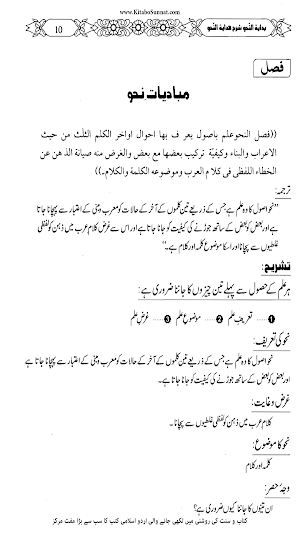 www.KitaboSunnat.com
بداية النحو شرح هداية النحو
10
فصل
مبادیات نحو
((فصل النحو علم باصول يعرف بها احوال اواخر الكلم الثلث من حيث
الاعراب والبناء وكيفية تركيب بعضها مع بعض والغرض منه صيانة الذهن عن
الخطاء اللفظى فى كلام العرب وموضوعه الكلمة والكلام.))
ترجمہ:
”نحو اصول کا وہ علم ہے جس کے ذریعے تین کلموں کے آخر کے حالات کو معرب و مبنی کے اعتبار سے پہچانا جاتا
ہے اور بعض کو بعض کے ساتھ جوڑنے کی کیفیت کو جانا جاتا ہے اور اس سے غرض کلام عرب میں ذہن کو لفظی
غلطیوں سے بچانا اور اسکا موضوع کلمہ اور کلام ہے۔“
تشریح:
ہر علم کے حصول سے پہلے تین چیزوں کا جاننا ضروری ہے:
1 ..... تعریف علم 2 ..... موضوع علم 3 ..... غرض علم
نحو کی تعریف:
نحو اصول کا وہ علم ہے جس کے ذریعے تین کلموں کے آخر کے حالات کو معرب و مبنی کے اعتبار سے پہچانا جاتا ہے
اور بعض کو بعض کے ساتھ جوڑنے کی کیفیت کو جانا جاتا ہے۔
غرض و غایت:
کلام عرب میں ذہن کو لفظی غلطیوں سے بچانا۔
نحو کا موضوع:
کلمہ اور کلام
وجہ حصر:
ان تینوں کا جاننا کیوں ضروری ہے؟
کتاب و سنت کی روشنی میں لکھی جانے والی اردو اسلامی کتب کا سب سے بڑا مفت مرکز